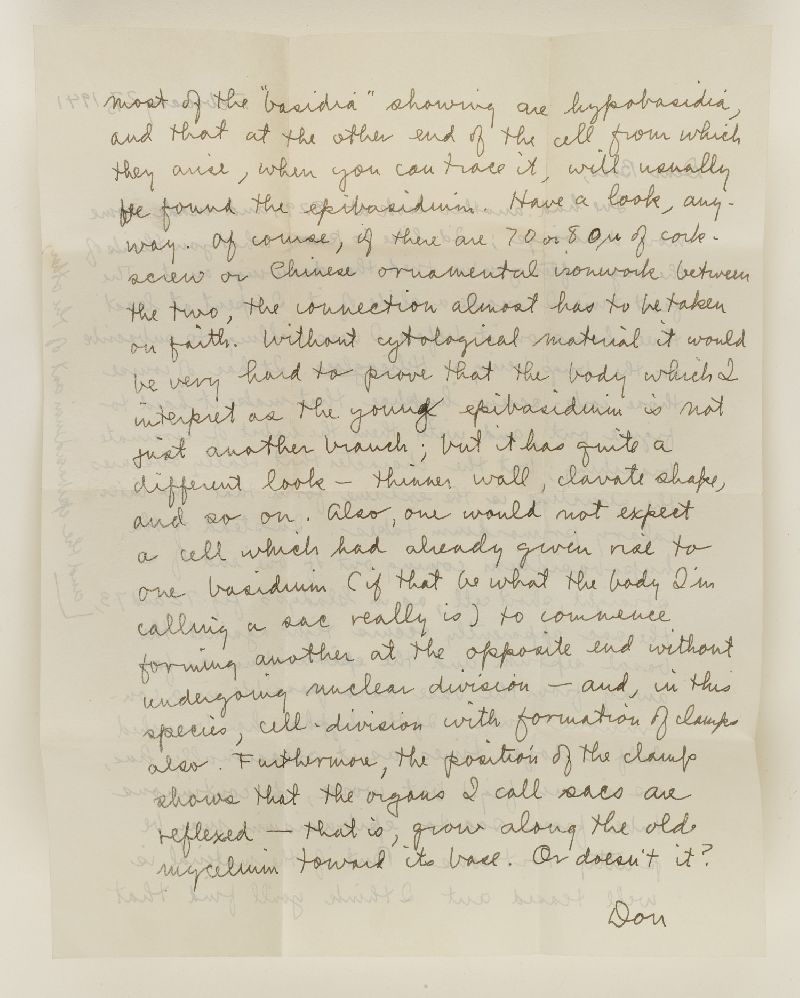 most of the "basidia" showing are hypobasidia,
and that at the other end of the cell from which
they arise, when you can trace it, will usually
be found the epibasidium. Have a look, any-
way. Of course, if there are 70 or 80 μ of cork-
screw or Chinese ornamental ironwork between
the two, the connection almost has to be taken
on faith. Without cytological material it would
be very hard to prove that the body which I
interpret as the young epibasidium is not
just another branch; but it has quite a
different look — thinner wall, clavate shape,
and so on. Also, one would not expect
a cell which had already given rise to
one basidium (if that be what the body I'm
calling a sac really is) to commence
forming another at the opposite end without
undergoing nuclear division — and, in this
species, cell-division with formation of clamps
also. Furthermore, the position of the clamp
shows that the organs I call sacs are
reflexed — that is, grow along the old
mycelium toward its base. Or doesn't it?
Don